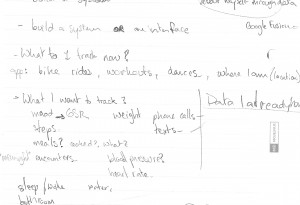 through data
- build a system or an interface
Google Fusion
- What do I track now?
bike rides, workouts, dances, where I am (location)
- What I want to track?
Data I already
mood → GSR weight phone calls
steps texts
meals? what?
encounters blood pressure?
heart rate
sleep/wake
bathroom